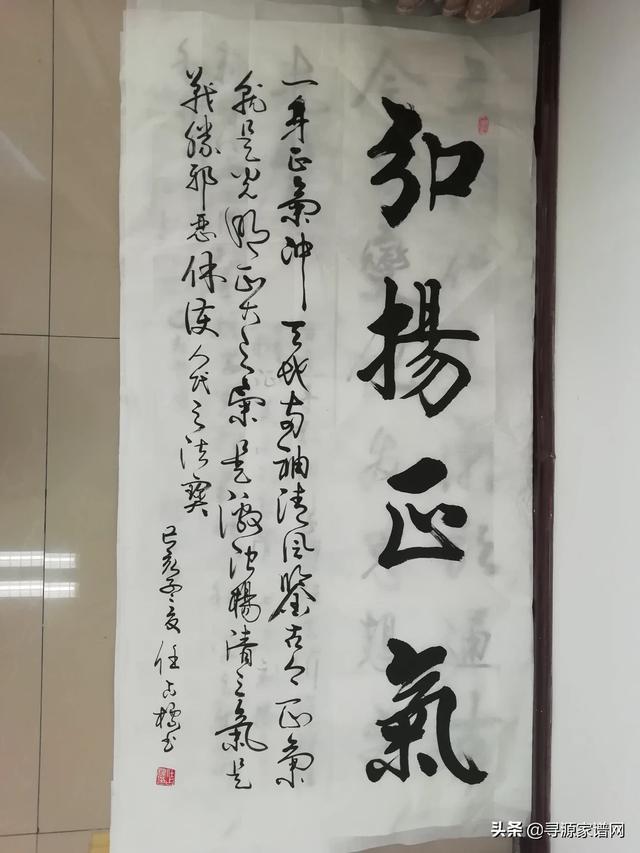 弘揚正氣
一身正氣沖天地两袖清風鑒古今正氣
就是光明正大之氣是激浊揚清之氣是
战勝邪惡保護人民之法寶
己亥冬夜任占
头条@寻源家谱网